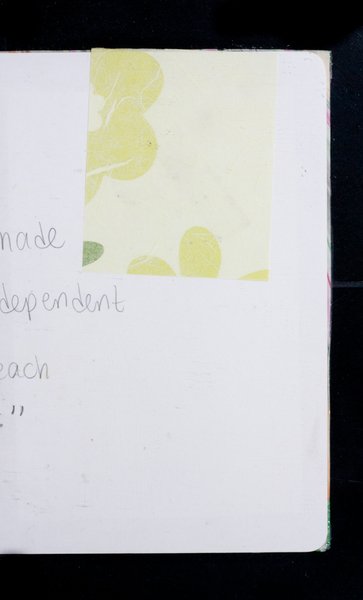 made
dependent
each
."